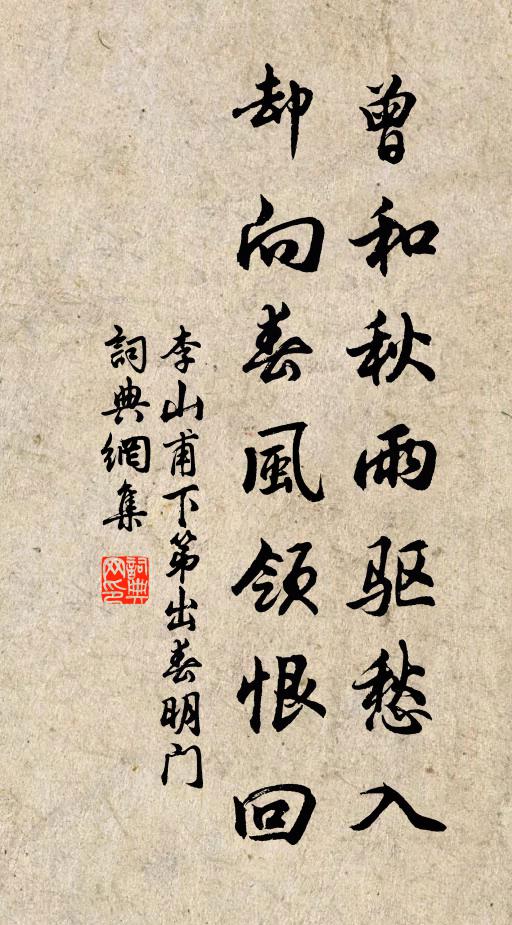 曾和秋雨驱愁入
却向春風领恨回
李山甫下第出春明门
詞典網集
詞典网印